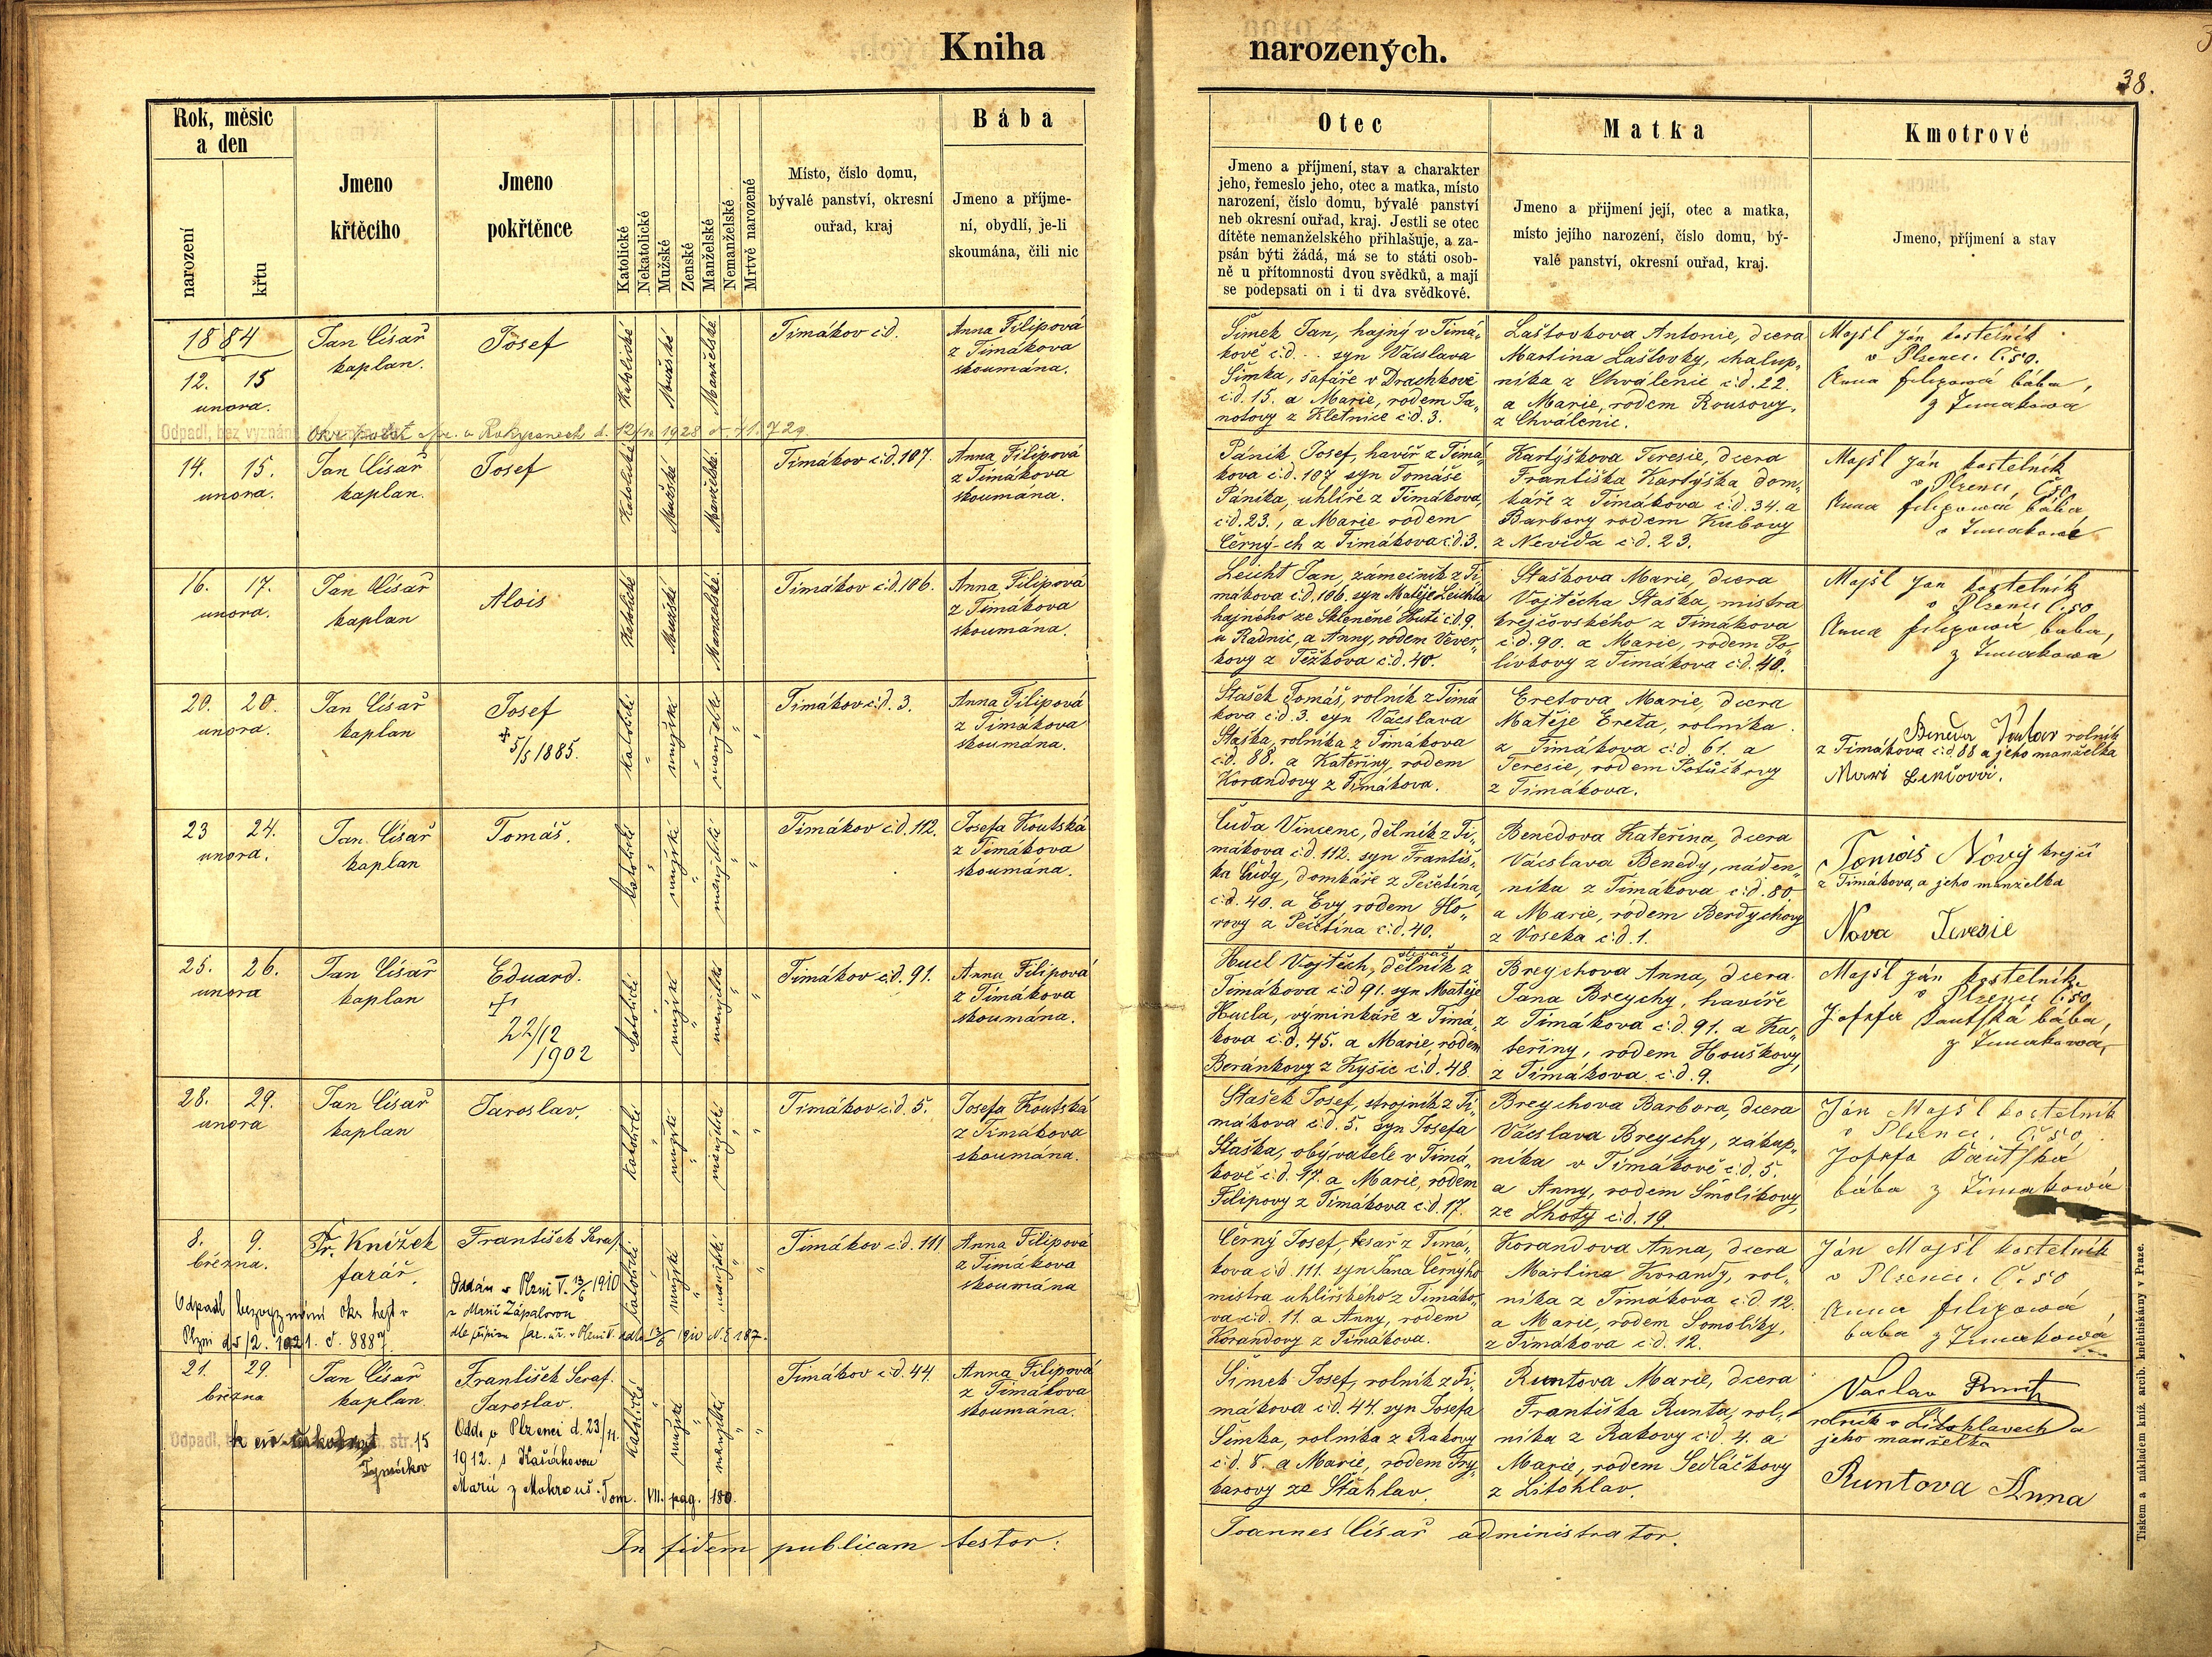 Kniha
narozených.
38.
Rok, měsíc
a den
narození
křtu
Jmeno
křtěcího
Jmeno
pokřtěnce
Katolické
Nekatolické
Mužské
Ženské
Manželské
Nemanželské
Mrtvě narozené
Místo, číslo domu,
bývalé panství, okresní
ouřad, kraj
Bába
Jmeno a příjme-
ní, obydlí, je-li
skoumána, čili nic
Otec
Jmeno a příjmení, stav a charakter
jeho, řemeslo jeho, otec a matka, místo
narození, číslo domu, bývalé panství
neb okresní ouřad, kraj. Jestli se otec
dítěte nemanželského přihlašuje, a za-
psán býti žádá, má se to státi osob-
ně u přítomnosti dvou svědků, a mají
se podepsati on i ti dva svědkové.
Matka
Jmeno a přijmení její, otec a matka,
místo jejího narození, číslo domu, bý-
valé panství, okresní ouřad, kraj.
Kmotrové
Jmeno, příjmení a stav
1884
12. 15
unora.
Jan Císař
kaplan.
Josef
Katolické
Mužské
Manželské
Timákov č.d.
Anna Filipová
z Timákova
skoumána.
Šimek Jan, hajný v Timá„
kově č.d... syn Václava
Šimka, šafáře v Drachkově
č.d. 15. a Marie, rodem Ja„
notovy z Kletnice č.d. 3.
Laštovkova Antonie, dcera
Martina Laštovky, chalup„
níka z Chválenic č.d. 22.
a Marie, rodem Rousovy,
z Chválenic.
Majšl Ján kostelník
v Plzenci č. 50.
Anna filipowá bába,
z Timakowa
Odpadl, bez vyznání
v Rokycanech d. 12/10 1928 č. 41.729
14. 15.
unora.
Jan Císař
kaplan.
Josef
Katolické
Mužské
Manželské.
Timákov č.d. 107.
Anna Filipová
z Timákova
skoumána.
Pánik Josef, havíř z Timá„
kova č.d. 107 syn Tomáše
Pánika, uhlíře z Timákova,
č.d. 23., a Marie rodem
Černý-ch z Timákova č.d. 3.
Kartýškova Teresie, dcera
Františka Kartýška dom„
káře z Timákova č.d. 34. a
Barbory rodem Kubovy
z Nevida č.d. 23.
Majšl Ján kostelník
v Plzenci, č. 50
Anna filipowá bába,
16. 17.
unora.
Jan Císař
kaplan
Alois
Katolické
Mužské
Manželské.
Timákov č.d. 106.
Anna Filipová
z Timákova
skoumána.
Leicht Jan, zámečník z Ti„
mákova č.d. 106. syn Matěje Leichta
hajného ze Skleněné Huti č.d. 9.
u Radnic, a Anny, rodem Vever„
kovy z Těžkova č.d. 40.
Staškova Marie, dcera
Vojtěcha Staška, mistra
krejčovského z Timákova
č.d. 90. a Marie, rodem Po„
lívkovy z Timákova č.d. 40.
Majšl Jan kostelník
v Plzenci č. 50
Anna filipowá baba,
z Timakowa
20. 20.
unora.
Jan Císař
kaplan
Josef
+ 5/5 1885.
katolické
mužské
manželské
Timákov č.d. 3.
Anna Filipová
z Timákova
skoumána.
Stašek Tomáš, rolník z Timá
kova č.d. 3. syn Václava
Staška, rolníka z Timákova
č.d. 88. a Kateřiny, rodem
Korandovy z Timákova.
Eretova Marie, dcera
Matěje Ereta, rolníka
z Timákova č.d. 61. a
Teresie, rodem Potůčkovy
z Timákova.
rolník
z Timákova č.d. 88 a jeho manželka
23 24.
unora.
Jan Císař
kaplan
Tomáš.
katolické
mužské
manželské
Timákov č.d. 112.
Josefa Koutská
z Timákova
skoumána.
Čuda Vincenc, dělník z Ti„
mákova č.d. 112. syn Františ„
ka Čudy, domkáře z Pečetína,
č.d. 40. a Evy, rodem Ho„
rovy z Pečetína č.d. 40.
Benedova Kateřina, dcera
Václava Benedy, náden„
níka z Timákova č.d. 80.
a Marie, rodem Berdychovy
z Voseka č.d. 1.
Tomáš Nový krejčí
z Timákova, a jeho manželka
Nova Teresie
25. 26.
unora
Jan Císař
kaplan
Eduard.
+
22/12
1902
katolické
mužské
manželské
Timákov č.d. 91.
Anna Filipová
z Timákova
skoumána.
Hucl Vojtěch, dělník z
Timákova č.d 91. syn Matěje
Hucla, výminkáře z Timá„
kova č.d. 45. a Marie, rodem
Beránkovy z Kyšic č.d. 48.
Breychova Anna, dcera
Jana Breychy, havíře
z Timákova č.d. 91. a Ka„
teřiny, rodem Houškovy,
z Timákova č.d. 9.
Majšl Ján kostelník
v Plzenci č. 50,
Josefa Kautská bába,
z Timakowa,
28. 29.
unora
Jan Císař
kaplan
Jaroslav.
katolické
mužské
manželské
Timákov č.d. 5.
Josefa Koutská
z Timákova
skoumána.
Stašek Josef, strojník z Ti„
mákova č.d. 5. syn Josefa
Staška, obývatele v Timá„
kově č.d. 47. a Marie, rodem
Filipovy z Timákova č.d. 17.
Breychova Barbora, dcera
Václava Breychy, zákup„
níka v Timákově č.d. 5.
a Anny, rodem Smolíkovy,
ze Lhoty č.d. 19.
Ján Majšl kostelník
v Plzenci. č. 50,
Josefa Kautská
bába z Timakowá
8. 9.
března.
Fr. Knížek
farář.
František Seraf.
Oddán v Plzni V. 13/6 1910
s Marií Zápalovou
dle přípisu far. úř. v Plzni V. ddto 13/6 1910 N.E. 187.
Odpadl bezvyznání okr. hejt v
Plzni d 5/2. 1921. č. 8887
katolické
mužské
manželské
Timákov č.d. 111.
Anna Filipová
z Timákova
skoumána
Černý Josef, tesař z Timá„
kova č.d 111. syn Jana Černýho
mistra uhlířského z Timáko„
va č.d. 11. a Anny, rodem
Korandovy z Timákova.
Korandova Anna, dcera
Martina Korandy, rol„
níka z Timákova č.d. 12.
a Marie, rodem Somolíky,
z Timákova č.d. 12.
Ján Majšl kostelník
v Plzenci. č. 50
Anna filipowá,
baba z Timakowá
21. 29.
března
Jan Císař
kaplan
František Seraf.
Jaroslav.
Odd. v Plzenci d. 23/11.
1912. s Kašákovou
Marií z Mokrouš. Tom. VII. pag. 180.
Odpadl,
str. 15
Tymákov
katolické
mužské
manželské
Timákov č.d. 44.
Anna Filipová
z Timákova
skoumána.
Šimek Josef, rolník z Ti„
mákova č.d. 44. syn Josefa
Šimka, rolníka z Rakovy
č.d. 8. a Marie, rodem Try„
karovy ze Štáhlav.
Runtova Marie, dcera
Františka Runta, rol„
níka z Rakovy č.d. 4. a
Marie, rodem Sedláčkovy
z Litohlav.
Vaclav Runt
rolník v Litohlavech a
jeho manželka
Runtova Anna
In fidem publicam testor:
Joannes Císař administrator.
Tiskem a nákladem kníž. arcib. knihtiskárny v Praze.